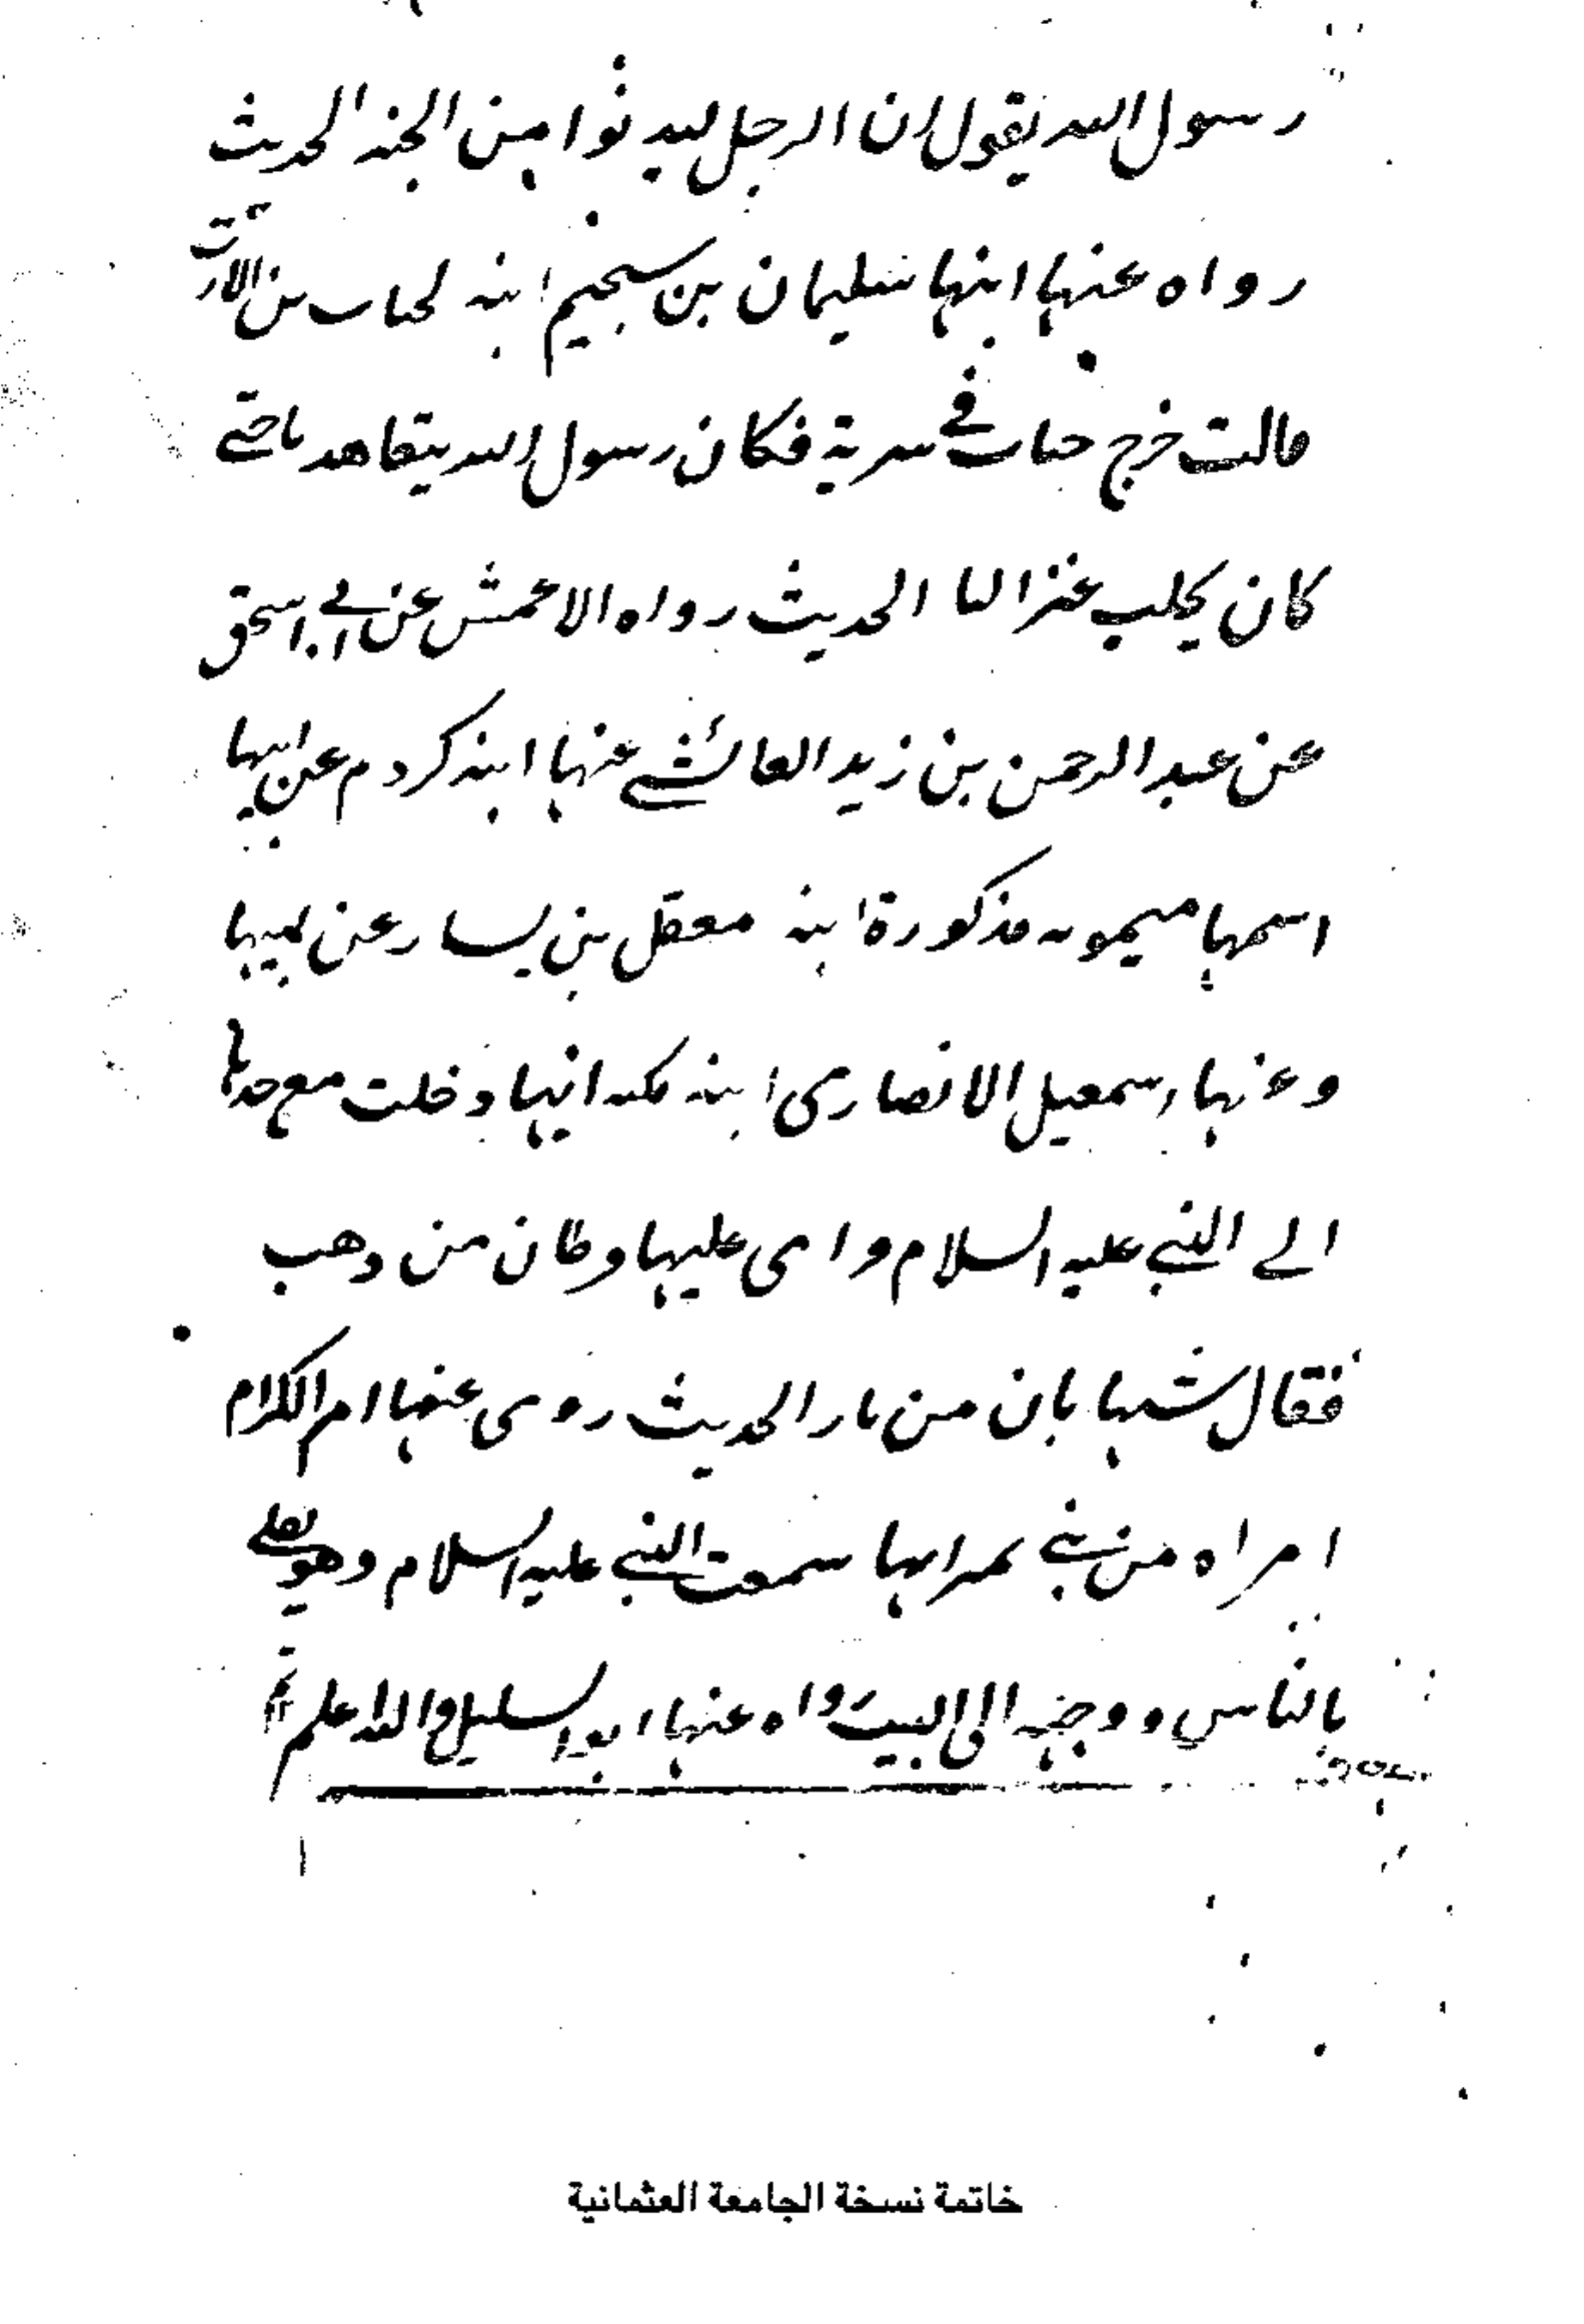 رسول الله يقول ان الرجل ليدنوا من الجنه الحديث
رواه عنها ابنها سليمان بن سحيم ابنه لخباب بن الارت
قالت خرج خباب في سرية فكان رسول الله يتعاهدنا حتى
كان يحلب عنزا لنا الحديث رواه الاعمش عن ابي اسحق
عن عبد الرحمن بن زيد العائشي عنها ابنه كردم عن ابيها
اسمها ميمونه مذكورة ابنة معقل بن يسار عن ابيها
وعنها اسمعيل الانصاري ابنة انها دخلت مع جدتها
الى النبي عليه السلام و عليها من ذهب
فقال شهابان من نار الحديث روى عنها ام الكرام
امراه من بني انها سمعت النبي عليه السلام وهو يصلي
بالناس ووجهه الى البيت رواه عنها ابو السليل والله اعلم
خاتمة نسخة الجامعة العثمانية